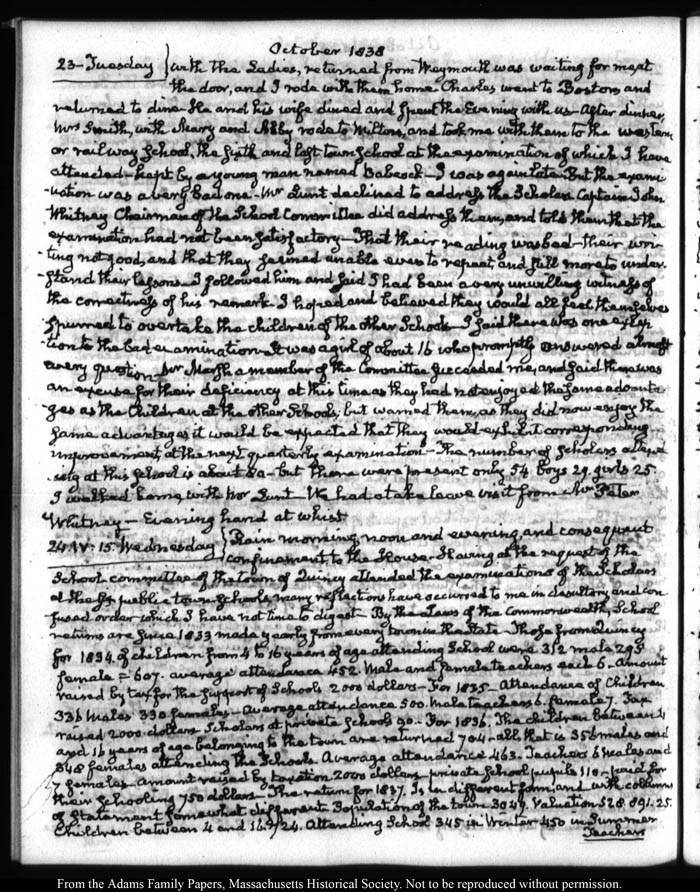 October 1838
23 - Tuesday } with the Ladies, returned from Weymouth was waiting for me at
the door, and I rode with them home. Charles went to Boston and
returned to dine. He and his wife dined and spent the Evening with us. After dinner,
Mrs Smith, with Mary and Abby rode to Milton, and took me with them to the western
or railway School, the sixth and last town School at the examination of which I have
attended - kept by a young man named Babcock - I was again late. But the exami-
-nation was a very bad one. Mr Lunt declined to address the Scholars. Captain John
Whitney Chairman of the School Committee did address them, and told them that the
examination had not been satisfactory - That their reading was bad - their wri-
-ting not good, and that they seemed unable even to repeat and still more to under-
-stand their lessons. I followed him and said I had been a very unwilling witness of
the correctness of his remark. I hoped and believed they would all feel themselves
spurred to overtake the children of the other Schools - I said there was one excep-
tion to the bad examination - It was a girl of about 16 who promptly answered almost
every question. Mr Marsh a member of the Committee succeeded me, and said there was
an excuse for their deficiency at this time as they had not enjoyed the same advanta-
-ges as the Children at the other Schools; but warned them, as they did now enjoy the
same advantages it would be expected that they would exhibit corresponding
improvement at the next quarterly examination - The number of scholars
at this School is about - but there were present only 54 boys 29. girls 25.
I walked home with Mr Lunt - We had a take leave visit from Mr Peter
Whitney - Evening hand at whist.
24. IV: 15. Wednesday } Rain morning, noon and evening, and consequent
confinement to the House. Having at the request of the
School committee of the town of Quincy attended the examinations of the Scholars
at the six public town Schools, many reflections have occurred to me in desultory and con
fused order which I have not time to digest - By the Laws of the Commonwealth, School
returns are since 1833 made yearly from every town in the State. Those from Quincy
for 1834. of children from 4 to 16 years of age attending School were 312 male 295
female = 607. average attendance 452. Male and female teachers each 6 - Amount
raised by tax for the support of Schools 2000 dollars - For 1835 - Attendance of Children
336 males 330 females - average attendance 500. male teachers 6. female 7. Tax
raised 2000. dollars. Scholars at private Schools 90 - For 1836. The children between 4
and 16 years of age belonging to the town are returned 704 - all that is 356 males and
348 females attending the Schools. Average attendance 463. Teachers 6 males and
7 females - amount raised by taxation 2000 dollars private School pupils 110 - paid for
their schooling 750 dollars - The return for 1837. Is in different form, and with columns
of statement somewhat different. Population of the town 3049. Valuation 528.891.25.
Children between 4 and 16. 724. Attending School 345 in Winter 450 in Summer
Teachers
From the Adams Family Papers, Massachusetts Historical Society. Not to be reproduced without permission.